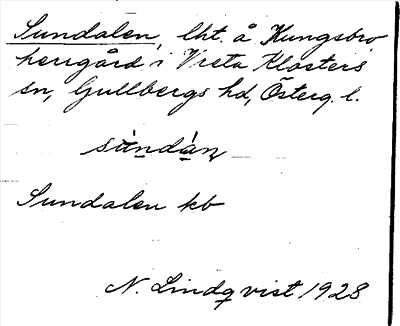 Sundalen, lht. å Kungsbro
herrgård i Vreta Klosters
sn, Gullbergs hd, Österg. l.
sùndàn,
Sundalen kb
N. Lindqvist 1928